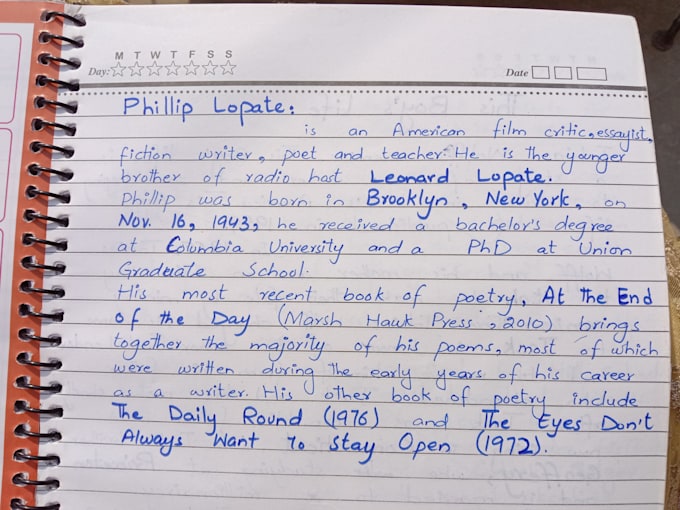 M T W T F S S
Day: Date
Phillip Lopate:
is an American film critic, essayist,
fiction writer, poet and teacher. He is the younger
brother of radio host Leonard Lopate.
Phillip was born in Brooklyn, New York, on
Nov. 16, 1943, he received a bachelor's degree
at Columbia University and a PhD at Union
Graduate School.
His most recent book of poetry, At the End
of the Day (Marsh Hawk Press, 2010) brings
together the majority of his poems, most of which
were written during the early years of his career
as a writer. His other book of poetry include
The Daily Round (1976) and The Eyes Don't
Always Want To Stay Open (1972).